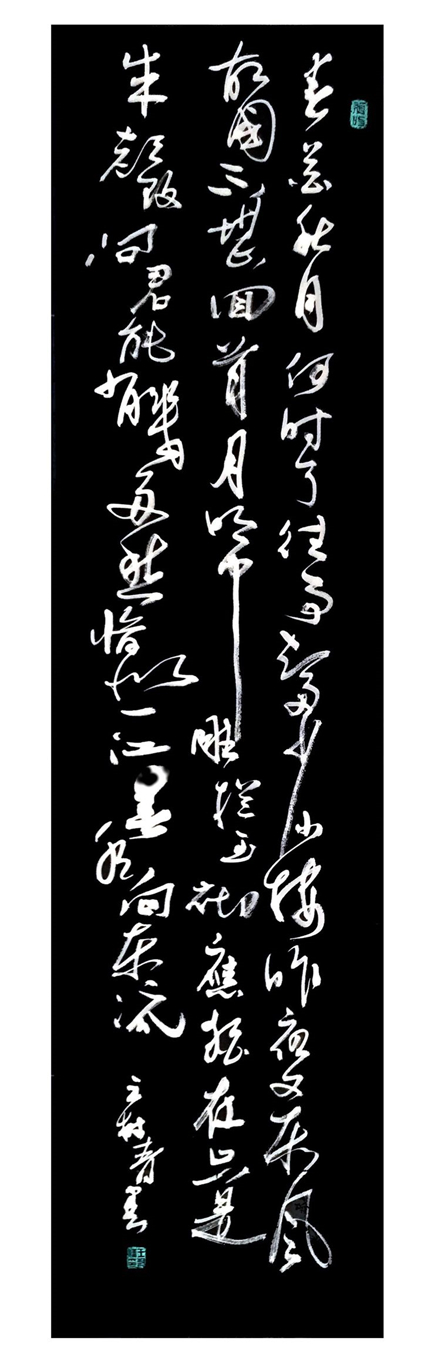 春花秋月何时了往事知多少小楼昨夜又东风
故國不堪回首月明中雕栏玉砌應猶在只是
朱颜改问君能有幾多愁恰似一江春水向东流